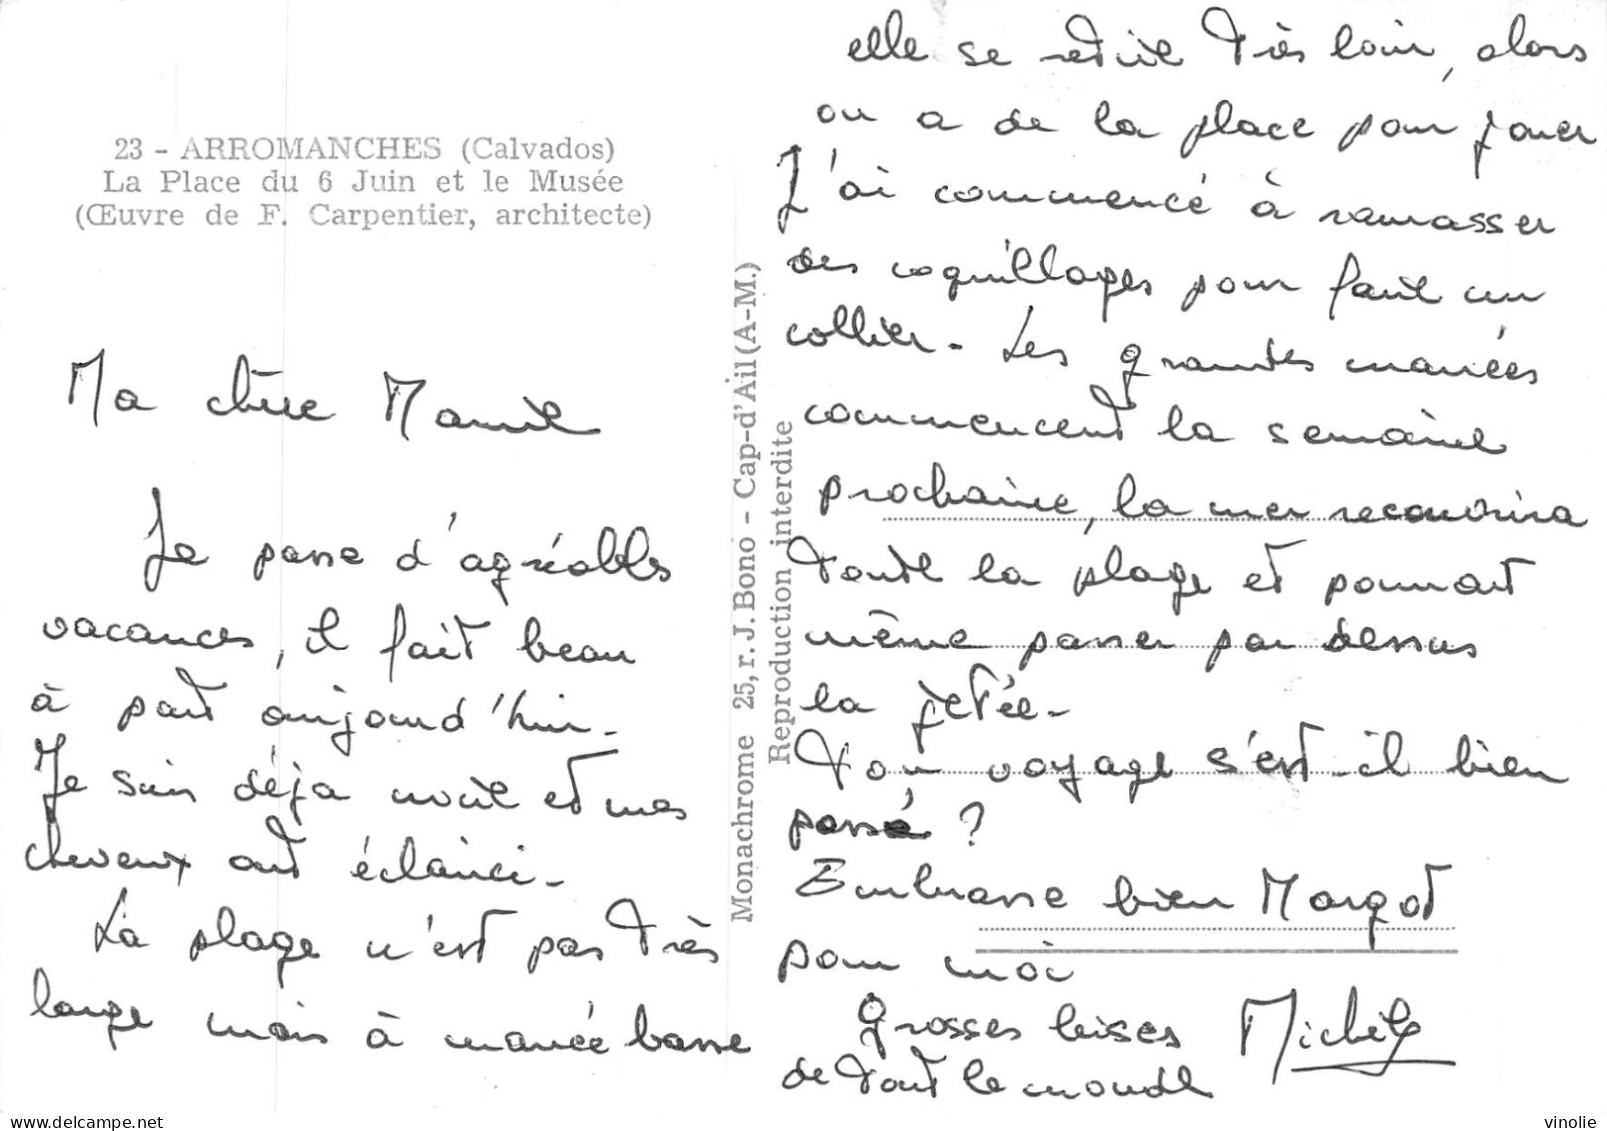 23 - ARROMANCHES (Calvados)
La Place du 6 Juin et le Musée
(Œuvre de F. Carpentier, architecte)
Ma chère Mamie
Je passe d'agréables
vacances, il fait beau
à part aujourd'hui.
Je suis déjà noire et mes
cheveux ont éclairci.
La plage n'est pas très
large mais à marée basse
Monachrome 25, r. J. Bono - Cap-d'Ail (A-M.)
Reproduction interdite
elle se retire très loin, alors
on a de la place pour jouer
J'ai commencé à ramasser
des coquillages pour faire un
collier. Les grandes marées
commencent la semaine
prochaine, la mer recouvrira
toute la plage et pourrait
même passer par dessus
la jetée.
Ton voyage s'est-il bien
passé ?
Embrasse bien Margot
pour moi
Grosses bises Michèle
de tout le monde
vinolie